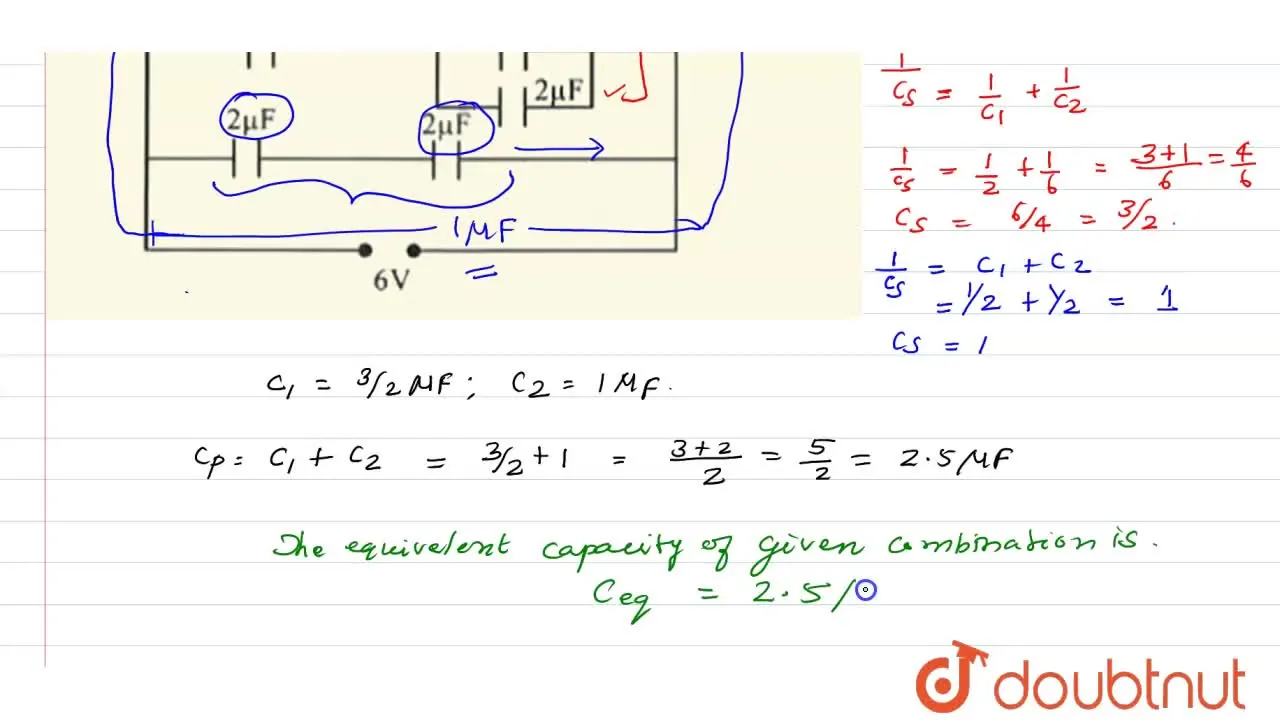 2μF
2μF 2μF ✓
1μF
=
6V
1/Cs = 1/C1 + 1/C2
1/Cs = 1/2 + 1/6 = 3+1/6 = 4/6
Cs = 6/4 = 3/2.
1/Cs = C1 + C2
= 1/2 + 1/2 = 1
Cs = 1
C1 = 3/2 μF; C2 = 1 μF.
Cp = C1 + C2 = 3/2 + 1 = 3+2/2 = 5/2 = 2.5 μF
The equivalent capacity of given combination is.
Ceq = 2.5 /
doubtnut